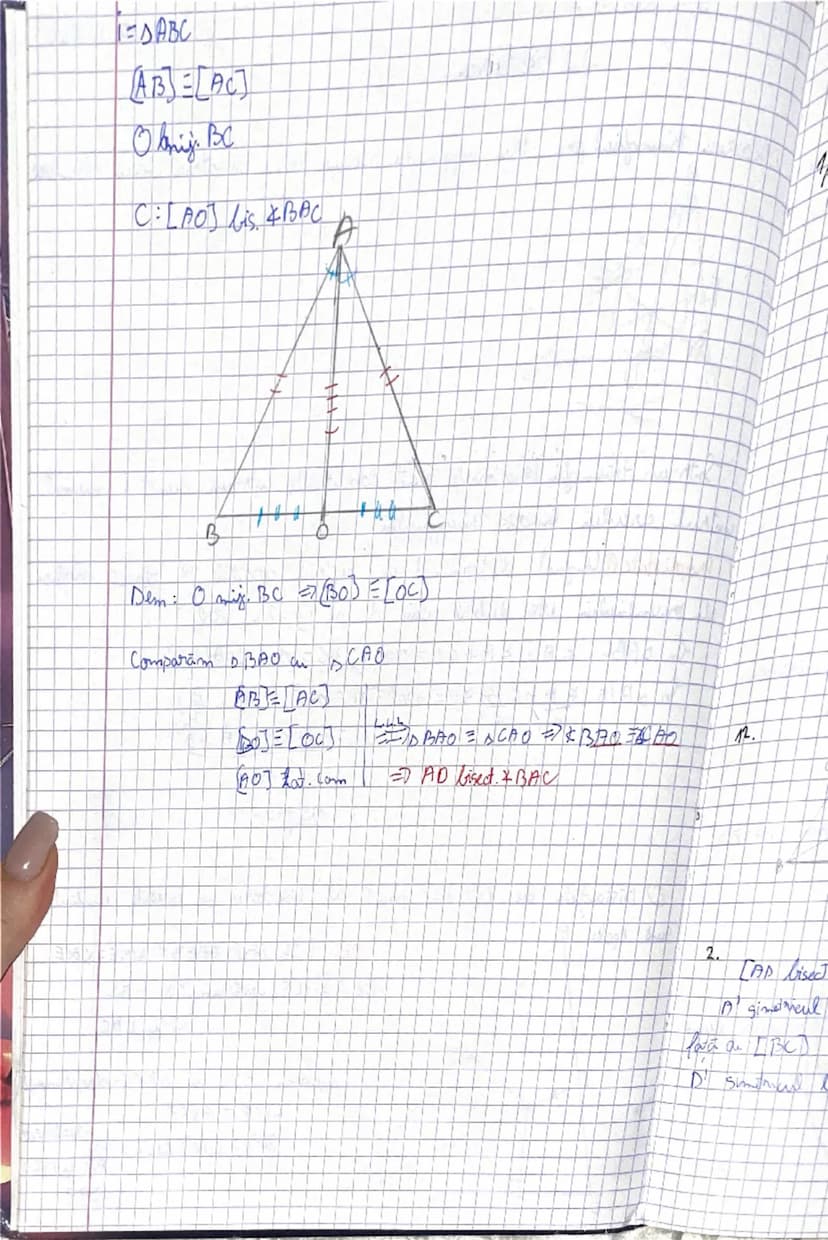 i=△ABC
[AB]≡[AC]
O mij. BC
C:[AO] bis. ∢BAC
A
B
O
C
Dem: O mij. BC ⇒[BO]≡[OC]
Comparăm △BAO cu △CAO
[AB]≡[AC]
[BO]≡[OC] L.L.L ⇒ △BAO ≡ △CAO ⇒ ∢BAO ≡ ∢CAO
[AO] lat. com ⇒ AO bisect. ∢BAC
2.
[AD bisect
A' simetricul
față de [BC]
D' simetricul